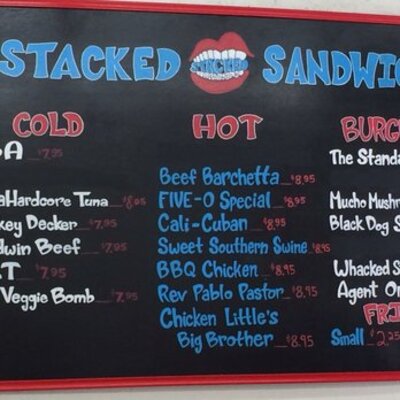 STACKED STACKED SANDWIC
COLD
A $7.95
aHardcore Tuna $8.05
key Decker $7.95
dwin Beef $7.95
T $7.95
Veggie Bomb $7.95
HOT
Beef Barchetta $8.95
FIVE-O Special $8.95
Cali-Cuban $8.95
Sweet Southern Swine $8.95
BBQ Chicken $8.95
Rev Pablo Pastor $8.95
Chicken Little's
Big Brother $8.95
BURG
The Standa
Mucho Mushr
Black Dog S
Whacked S
Agent Or
FRI
Small $2.25